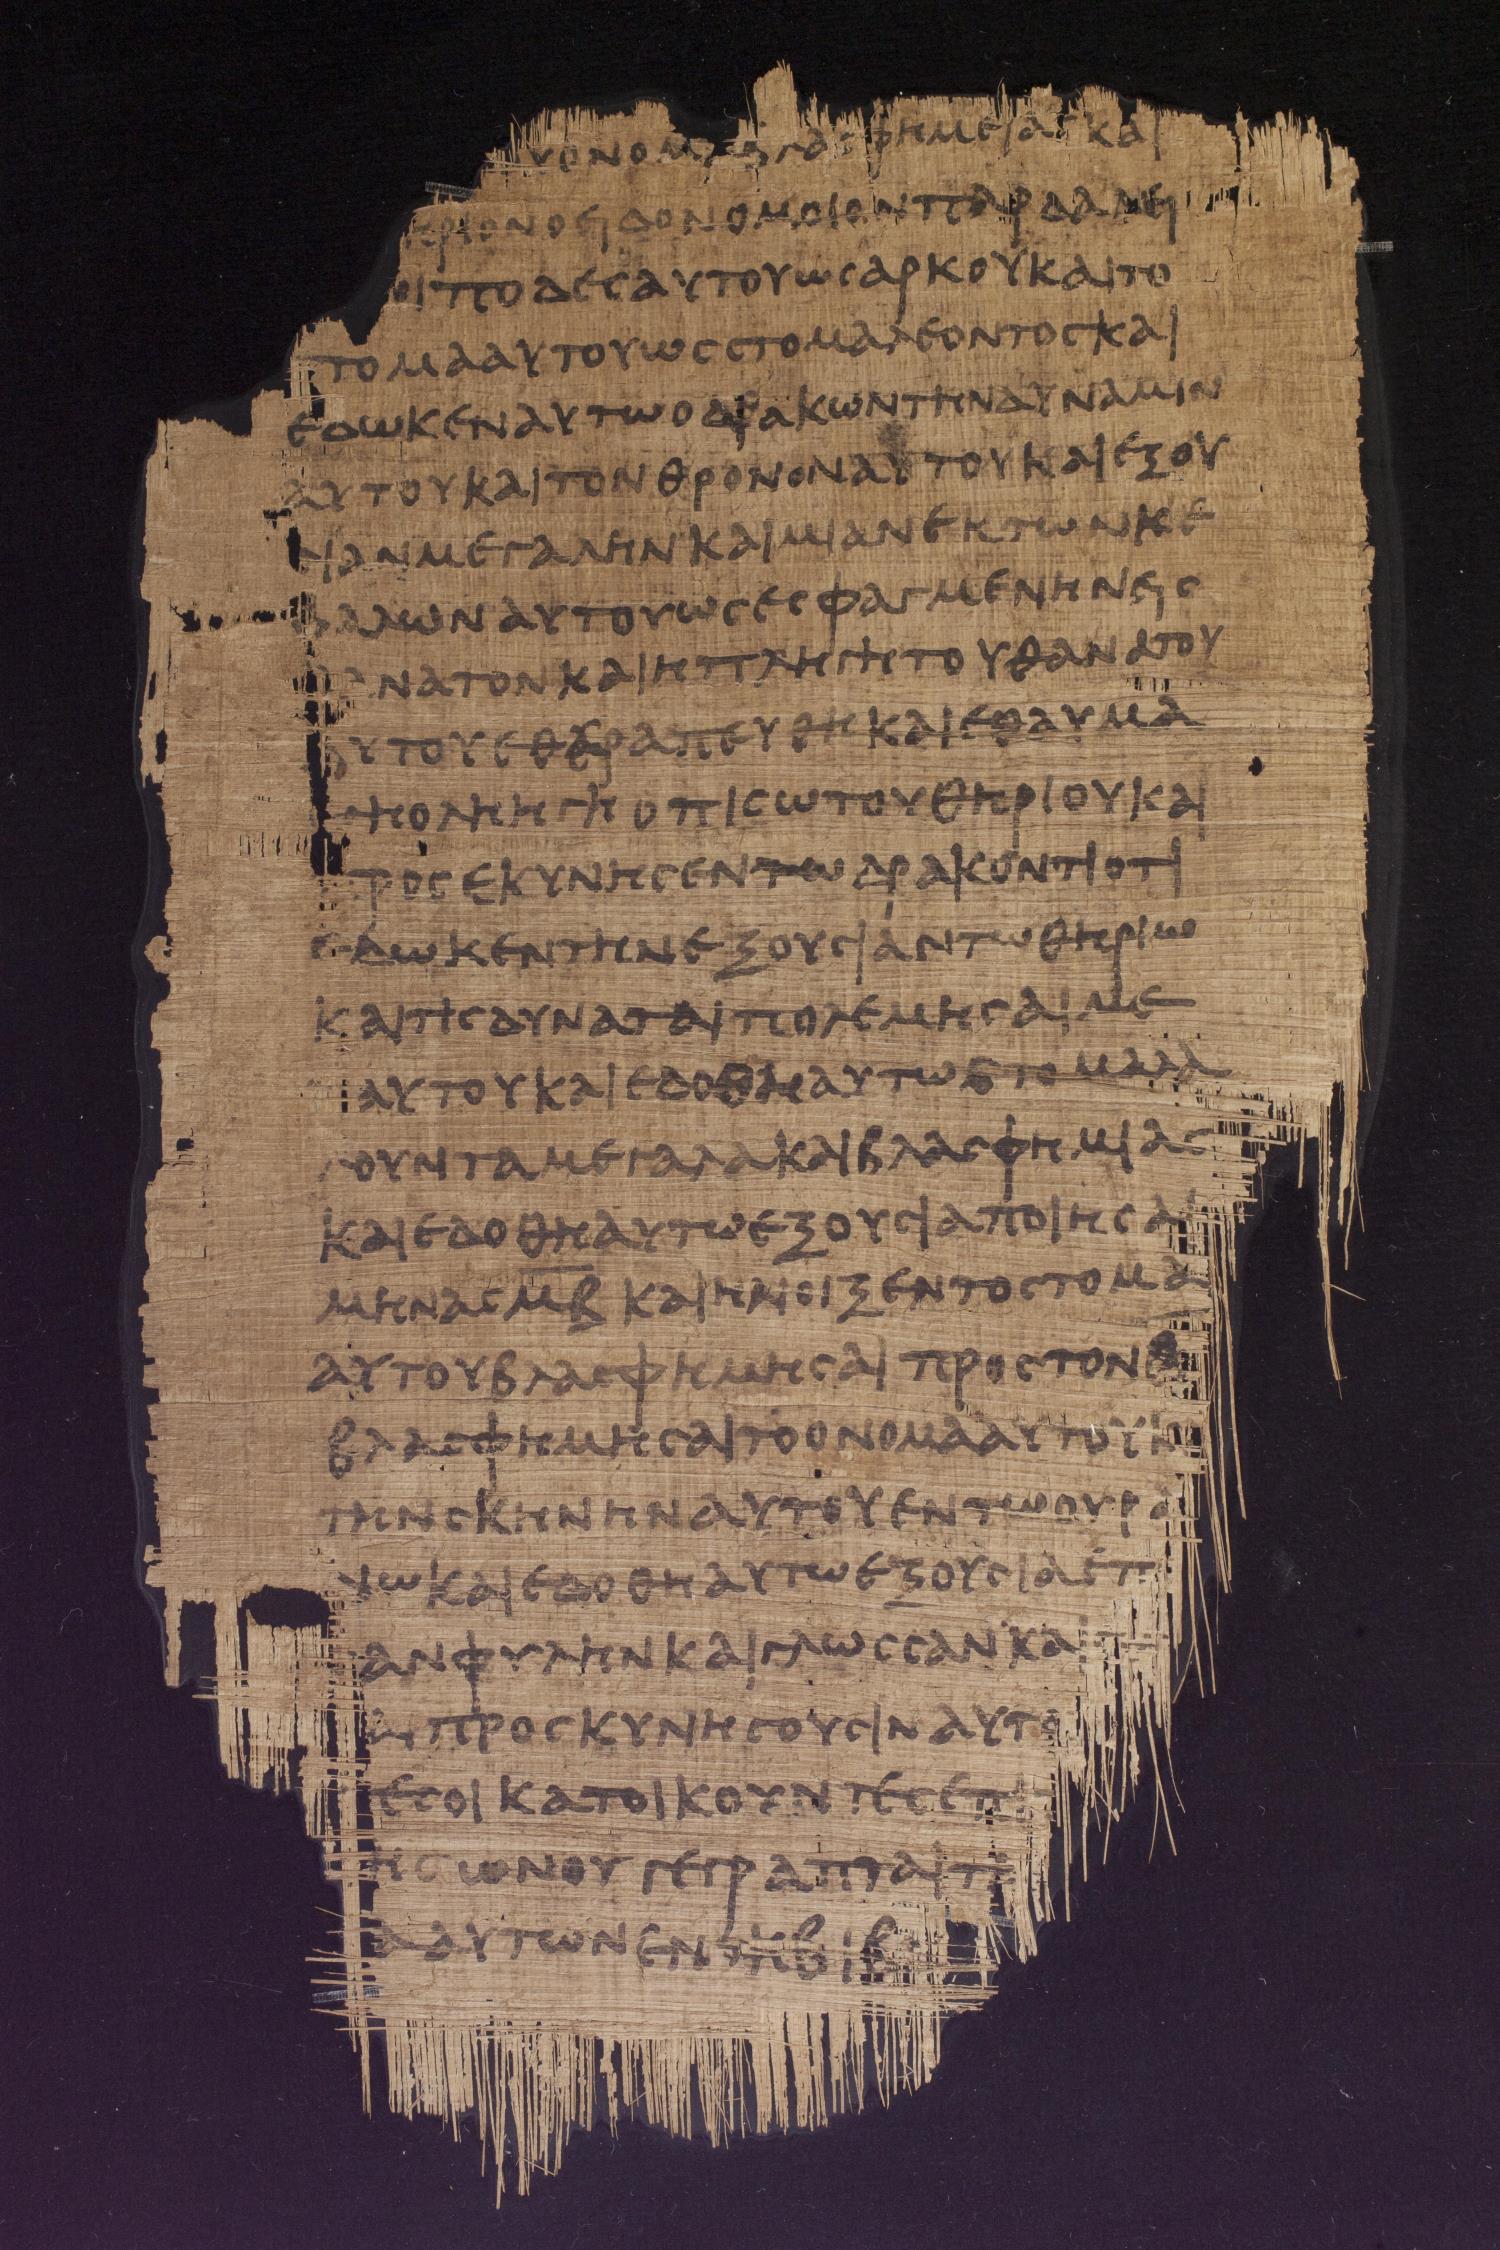 υονομα βλασφημειας και
ηριονοειδονομοιονπαρδαλει
οιποδεςαυτουωςαρκουκαιτο
τομααυτουωςστομαλεοντοςκαι
εδωκεναυτωοδρακωντηνδυναμιν
αυτουκαιτονθρονοναυτουκαιεξου
ιανμεγαληνκαιμιανεκτωνκε
αλωναυτουωςεσφαγμενηνεις
ανατονκαιηπληγητουθανατου
αυτουεθεραπευθηκαιεθαυμα
ηοληηγηοπισωτουθηριουκαι
προσεκυνησεντωδρακοντιοτι
εδωκεντηνεξουσιαντωθηριω
καιτισδυναταιπολεμησαιμε
αυτουκαιεδοθηαυτωστομαλα
ουνταμεγαλακαιβλασφημιας
καιεδοθηαυτωεξουσιαποιησαι
μηνας μβ καιηνοιξεντοστομα
αυτουβλασφημησαι προςτονθ
βλασφημησαιτοονομααυτουκ
τηνσκηνηναυτουεντωουρα
νωκαιεδοθηαυτωεξουσιαεπ
ανφυληνκαιγλωσσανκαι
αιπροσκυνησουσιναυτο
εςοικατοικουντεςεπι
ηςωνουγεγραπταιτ
ααυτωνεντηβιβ